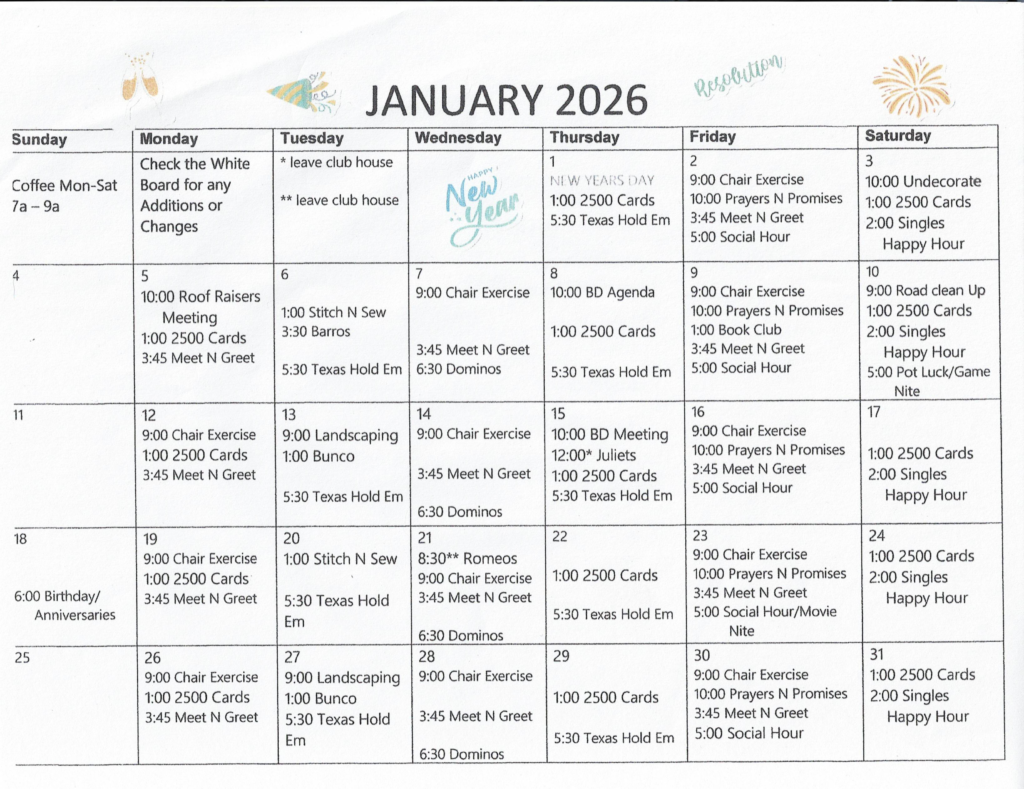 Resolution
JANUARY 2026
Sunday
Monday
Tuesday
Wednesday
Thursday
Friday
Saturday
Coffee Mon-Sat
7a – 9a
Check the White
Board for any
Additions or
Changes
* leave club house
** leave club house
HAPPY
New
Year
1
NEW YEARS DAY
1:00 2500 Cards
5:30 Texas Hold Em
2
9:00 Chair Exercise
10:00 Prayers N Promises
3:45 Meet N Greet
5:00 Social Hour
3
10:00 Undecorate
1:00 2500 Cards
2:00 Singles
Happy Hour
4
5
10:00 Roof Raisers
Meeting
1:00 2500 Cards
3:45 Meet N Greet
6
1:00 Stitch N Sew
3:30 Barros
5:30 Texas Hold Em
7
9:00 Chair Exercise
3:45 Meet N Greet
6:30 Dominos
8
10:00 BD Agenda
1:00 2500 Cards
5:30 Texas Hold Em
9
9:00 Chair Exercise
10:00 Prayers N Promises
1:00 Book Club
3:45 Meet N Greet
5:00 Social Hour
10
9:00 Road clean Up
1:00 2500 Cards
2:00 Singles
Happy Hour
5:00 Pot Luck/Game
Nite
11
12
9:00 Chair Exercise
1:00 2500 Cards
3:45 Meet N Greet
13
9:00 Landscaping
1:00 Bunco
5:30 Texas Hold Em
14
9:00 Chair Exercise
3:45 Meet N Greet
6:30 Dominos
15
10:00 BD Meeting
12:00* Juliets
1:00 2500 Cards
5:30 Texas Hold Em
16
9:00 Chair Exercise
10:00 Prayers N Promises
3:45 Meet N Greet
5:00 Social Hour
17
1:00 2500 Cards
2:00 Singles
Happy Hour
18
6:00 Birthday/
Anniversaries
19
9:00 Chair Exercise
1:00 2500 Cards
3:45 Meet N Greet
20
1:00 Stitch N Sew
5:30 Texas Hold
Em
21
8:30** Romeos
9:00 Chair Exercise
3:45 Meet N Greet
6:30 Dominos
22
1:00 2500 Cards
5:30 Texas Hold Em
23
9:00 Chair Exercise
10:00 Prayers N Promises
3:45 Meet N Greet
5:00 Social Hour/Movie
Nite
24
1:00 2500 Cards
2:00 Singles
Happy Hour
25
26
9:00 Chair Exercise
1:00 2500 Cards
3:45 Meet N Greet
27
9:00 Landscaping
1:00 Bunco
5:30 Texas Hold
Em
28
9:00 Chair Exercise
3:45 Meet N Greet
6:30 Dominos
29
1:00 2500 Cards
5:30 Texas Hold Em
30
9:00 Chair Exercise
10:00 Prayers N Promises
3:45 Meet N Greet
5:00 Social Hour
31
1:00 2500 Cards
2:00 Singles
Happy Hour